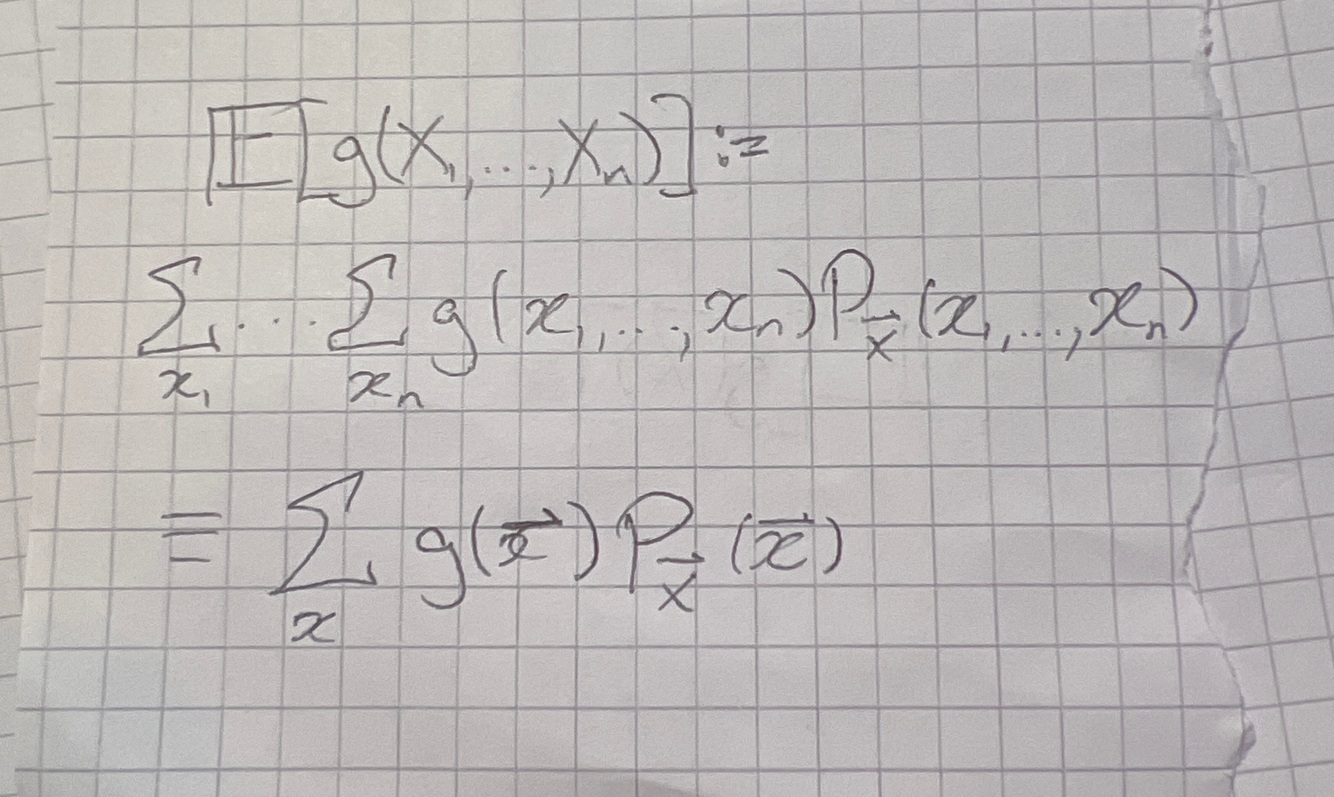 𝔼[g(X₁,...,Xₙ)] :=
∑_{x₁} ... ∑_{xₙ} g(x₁,...,xₙ) P_{\vec{X}}(x₁,...,xₙ)
≡ ∑_{x} g(\vec{x}) P_{\vec{X}}(\vec{x})